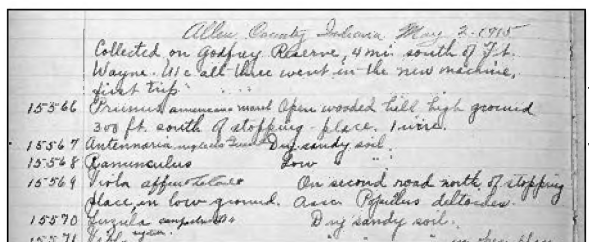 Allen County Indiana May 2. 1915
Collected on Godfrey Reserve, 4 mi. south of Ft.
Wayne. We all three went in the new machine,
first trip.
15566 Prunus americana Marsh Open wooded hill high ground
300 ft. south of stopping place. 1 wire.
15567 Antennaria neglecta Greene Dry sandy soil.
15568 Ranunculus Low " "
15569 Viola affinis LeConte On second road north of stopping
place, in low ground. Asso. Populus deltoides.
15570 Luzula campestris Dry sandy soil.
15571 Viola